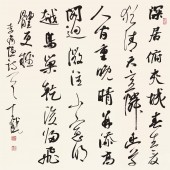 深居俯夾城春去夏
猶清天意憐幽草
人間重晚晴並添高
閣迥微注小窗明
越鳥巢乾後歸飛
體更輕
李商隱詩